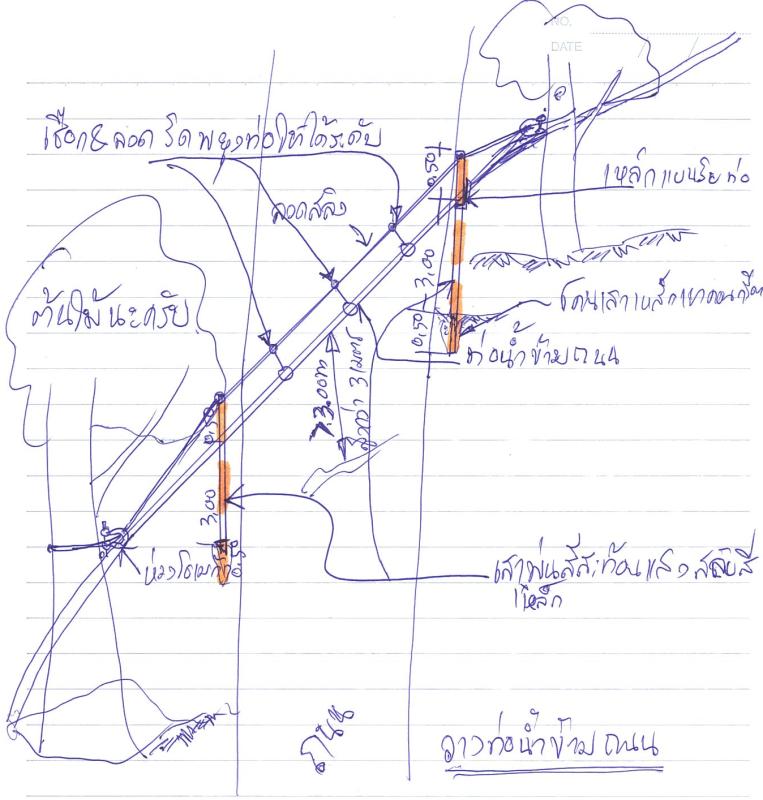 NO.
DATE
เชือก&ลวด รัดพยุงท่อให้ได้ระดับ
0.50
เหล็กแขนรัดท่อ
ลวดสลิง
3.00
ต้นไม้นะครับ
0.50
ท่อน้ำข้ามถนน
7.3.00m
สูงกว่า 3 เมตร
3.00
เสาพ่นสีสะท้อนแสงสลับสี
เหล็ก
ถนน
วางท่อน้ำข้ามถนน